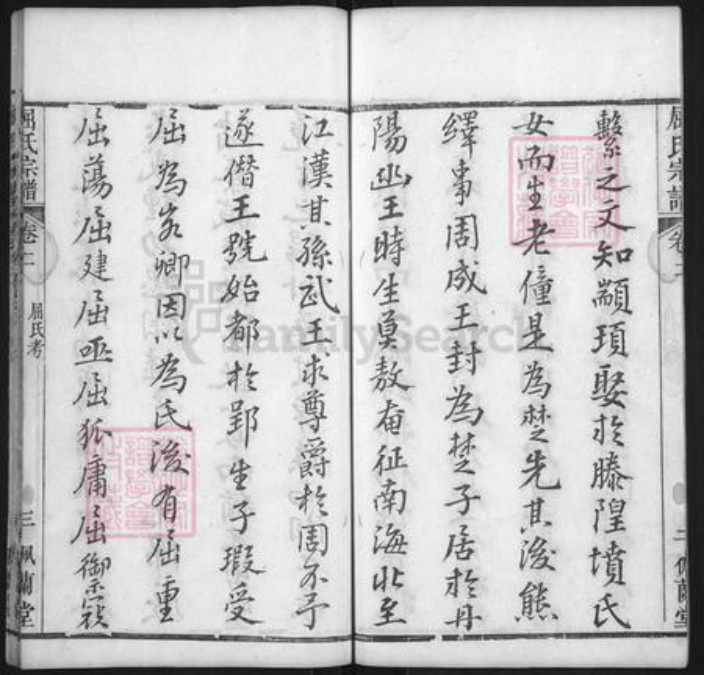 繫之文知顓頊娶於滕隍墳氏
女而生老僮是為楚先其後熊
繹事周成王封為楚子居於丹
陽幽王時生莫敖奄征南海北至
江漢其孫武王求尊爵於周不予
遂僭王號始都於郢生子瑕受
屈為客卿因以為氏後有屈重
屈蕩屈建屈屈狐庸屈御寇
屈氏宗譜 卷二 屈氏考 三 佩蘭堂
屈氏宗譜 卷二 二 佩蘭堂
FamilySearch